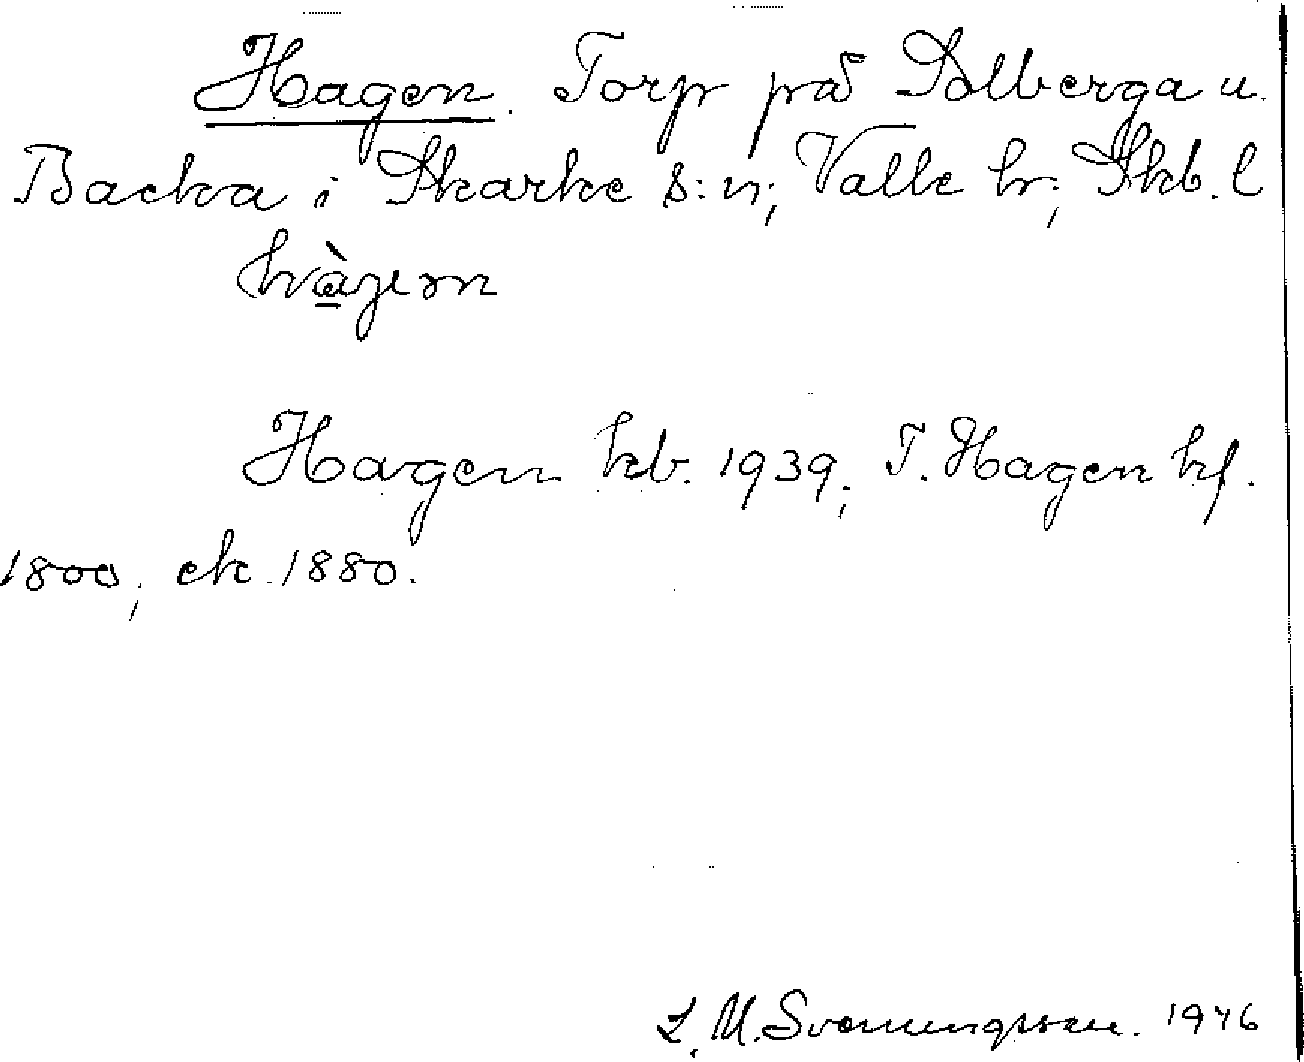 Hagen. Torp på Solberga u.
Backa i Skarke s:n; Valle hr; Skb. l
Hagen kb. 1939; T. Hagen hf.
1800; ek. 1880.
L. M. Svenungsson. 1946